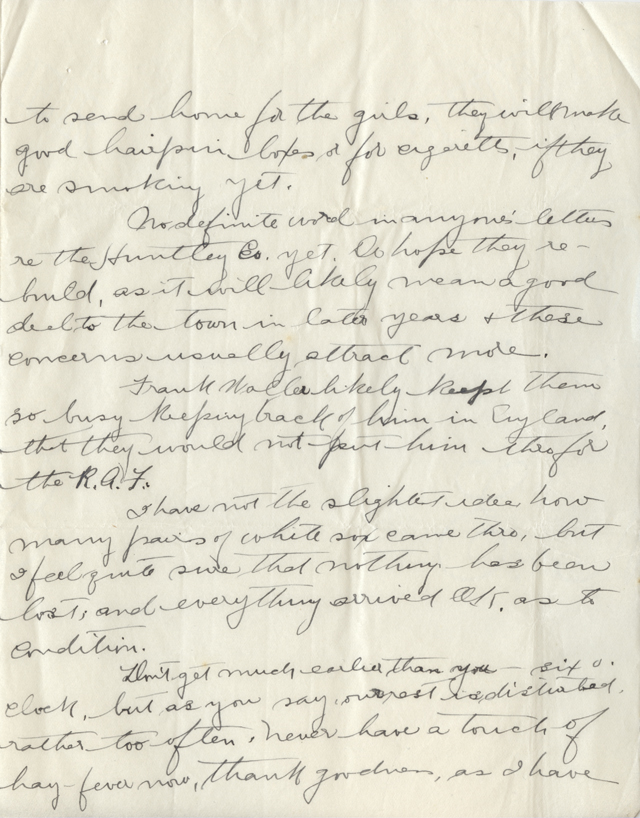 to send home for the girls, they will make
good hairpin boxes or for cigaretts, if they
are smoking yet.
No definite word in anyone's letters
re the Huntley Co. yet. Do hope they re-
build, as it will likely mean a good
deal to the town in later years & these
concerns usually attract more.
Frank likely kept them
so busy keeping track of him in England,
that they would not put him thro for
the R.A.F.
I have not the slightest idea how
many pairs of white sox came thro, but
I feel quite sure that nothing has been
lost; and everything arrived OK. as to
condition.
Don't get much earlier than you - six o.
clock, but as you say, our rest is distrubed.
rather too often. Never have a touch of
hay-fever now, thank goodness, as I have